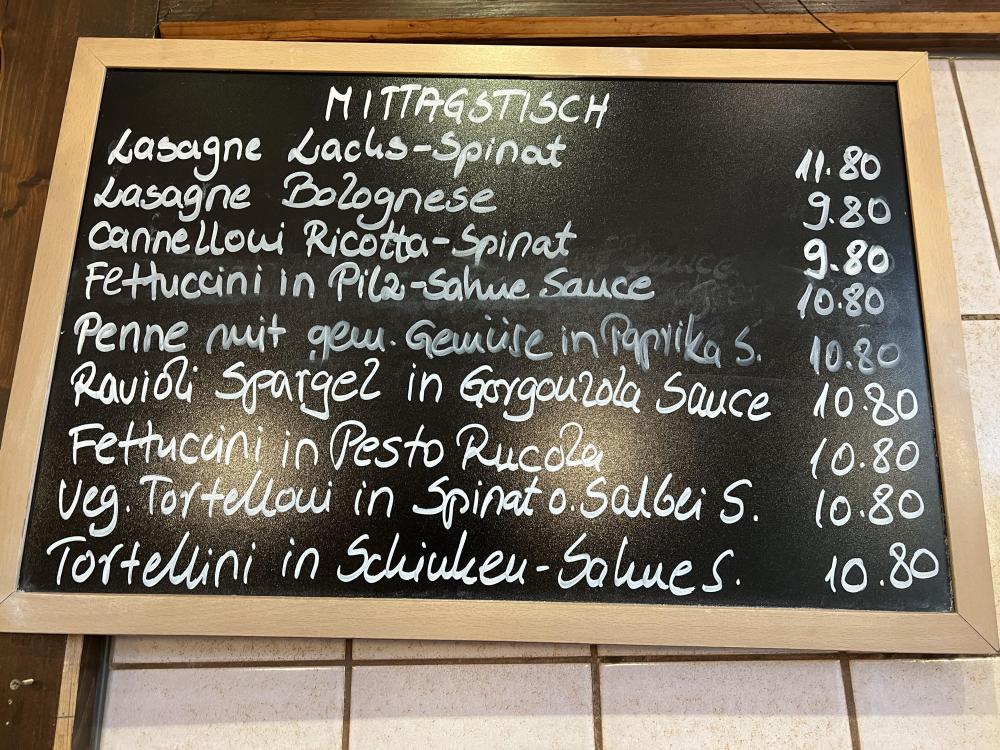 MITTAGSTISCH
Lasagne Lachs-Spinat 11.80
Lasagne Bolognese 9.80
Cannelloni Ricotta-Spinat 9.80
Fettuccini in Pilz-Sahne Sauce 10.80
Penne mit gem. Gemüse in Paprika S. 10.80
Ravioli Spargel in Gorgonzola Sauce 10.80
Fettuccini in Pesto Rucola 10.80
Veg. Tortelloni in Spinat o. Salbei S. 10.80
Tortellini in Schinken-Sahne S. 10.80